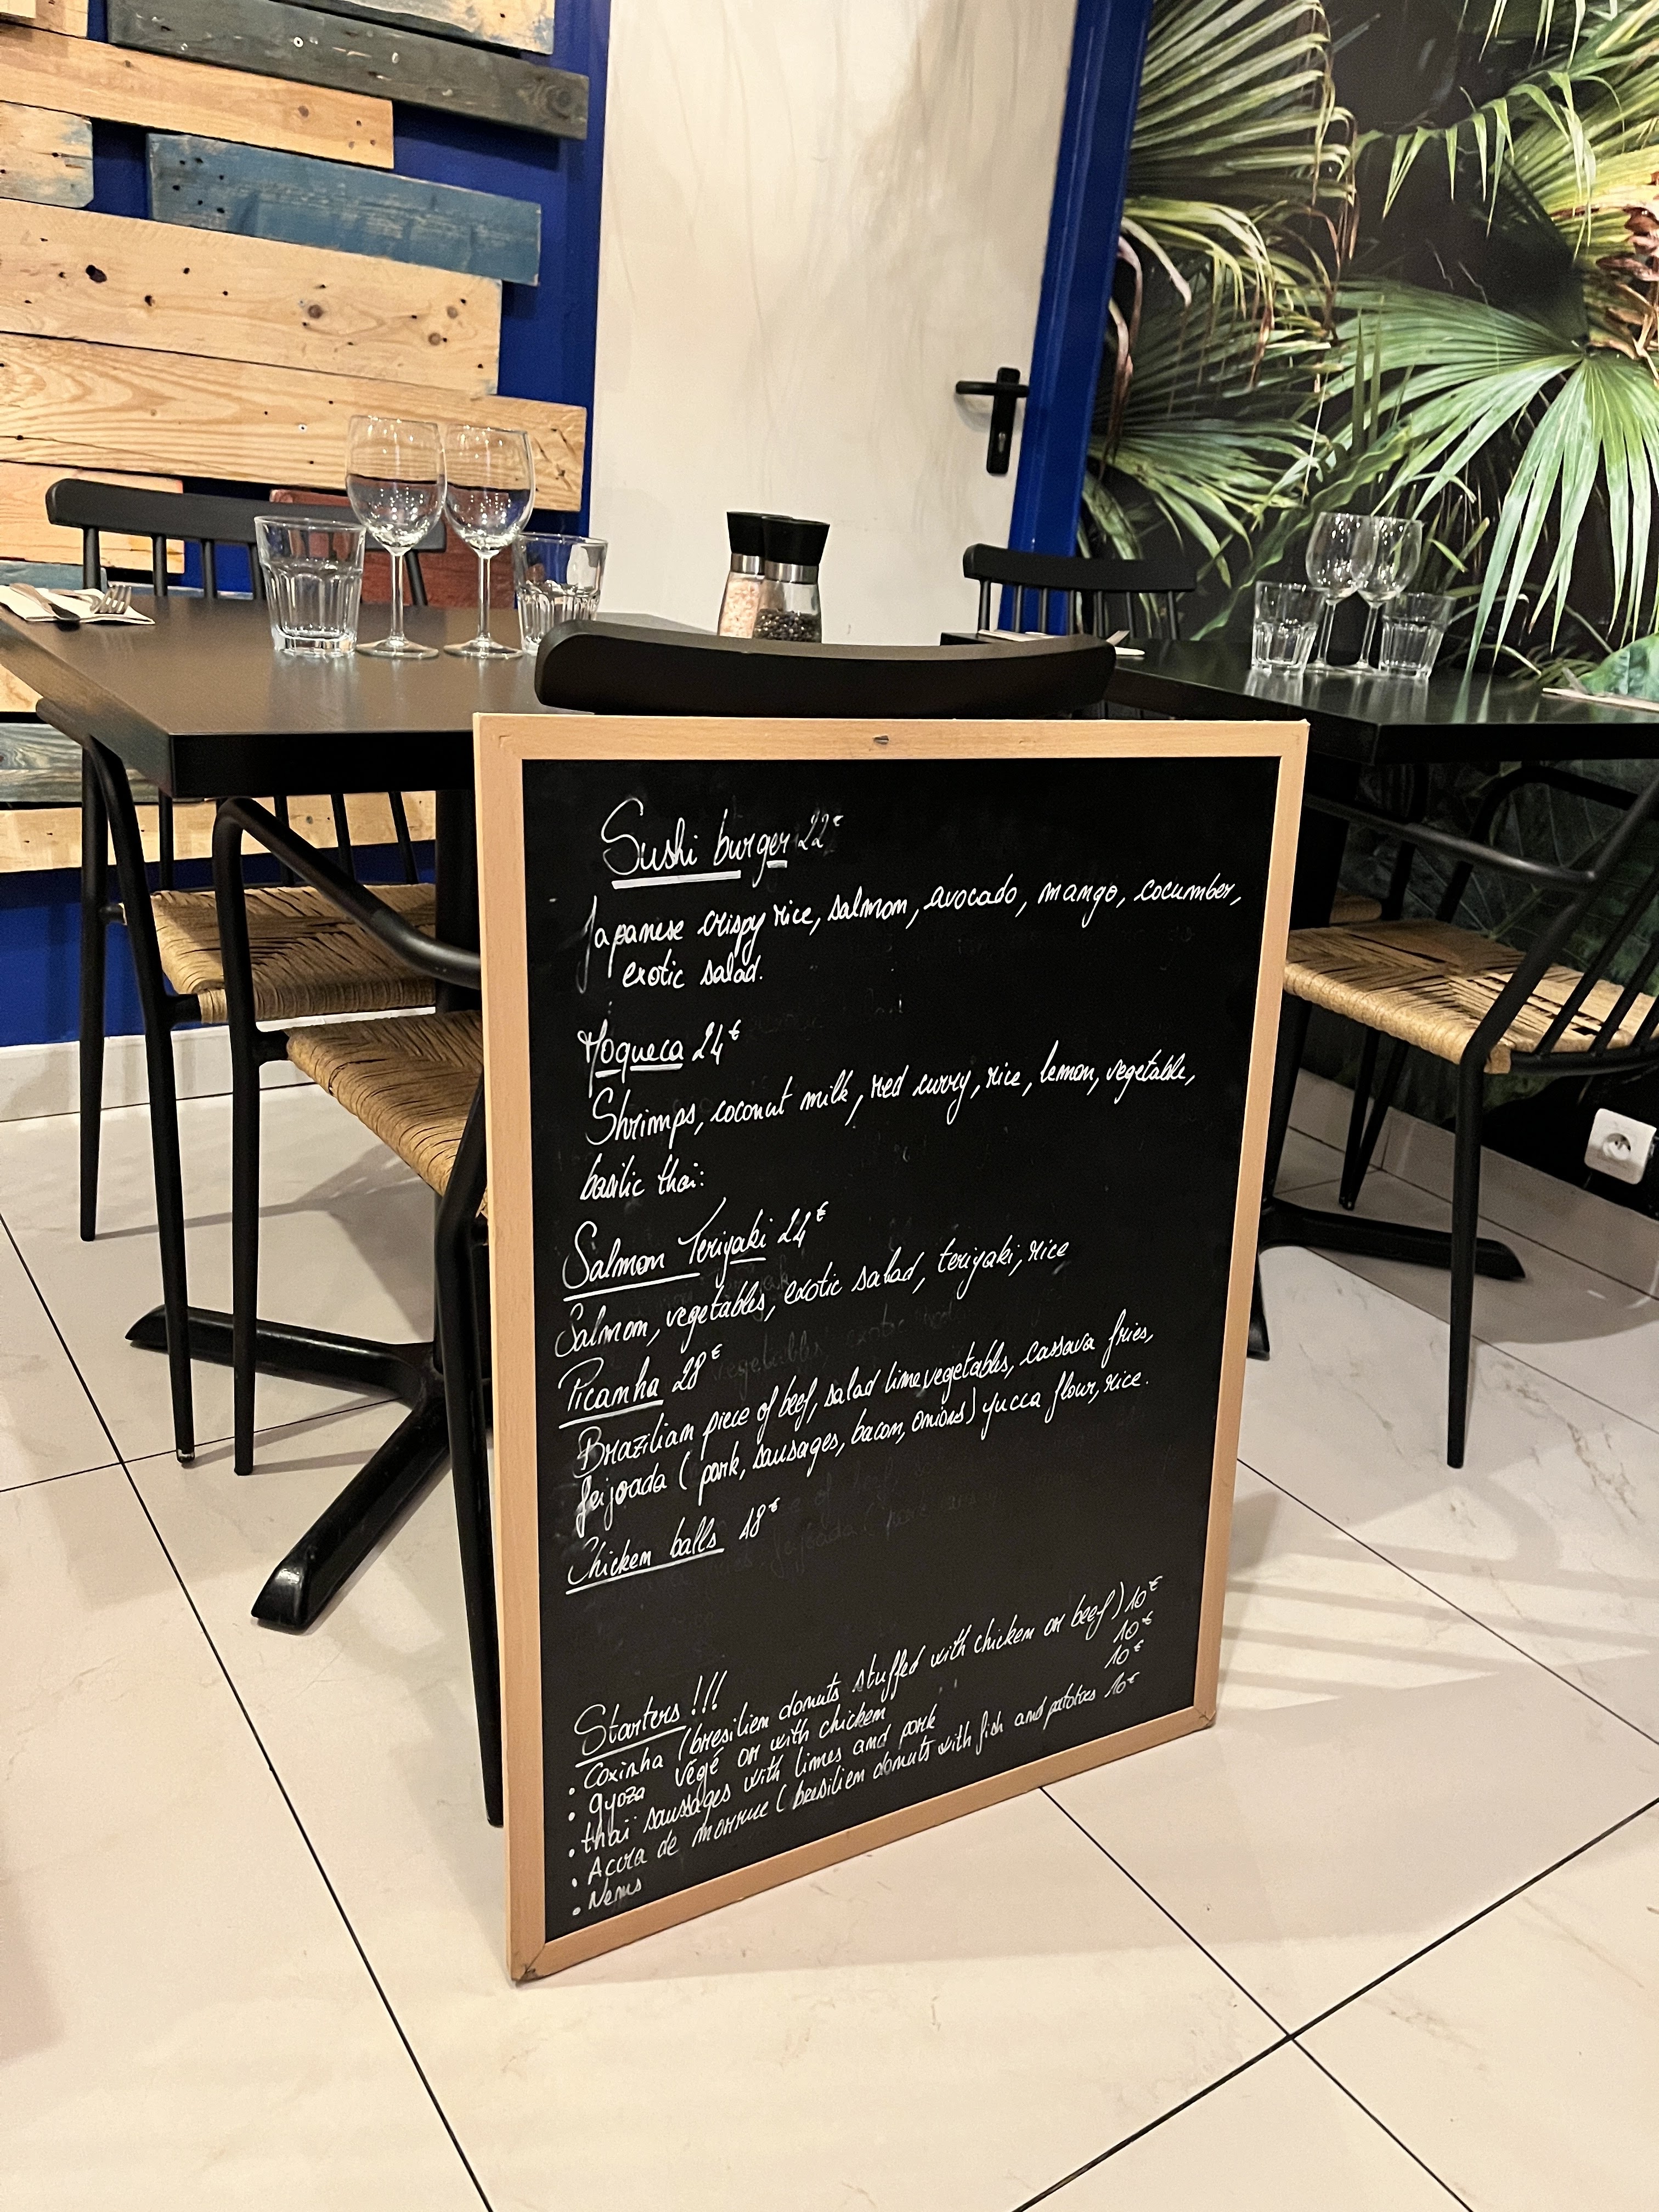 Sushi burger 22€
Japanese crispy rice, salmon, avocado, mango, cocumber,
exotic salad.
Moqueca 24€
Shrimps, coconut milk, red curry, rice, lemon, vegetable,
basilic thaï.
Salmon Teriyaki 24€
Salmon, vegetables, exotic salad, teriyaki, rice
Picanha 28€
Brazilian piece of beef, salad lime vegetables, cassava fries,
feijoada ( pork, sausages, bacon, onions) yucca flour, rice.
Chicken balls 18€
Starters !!!
• Coxinha (bresilien donuts stuffed with chicken or beef) 10€
• gyoza végé or with chicken 10€
• thaï saussages with limes and pork 10€
• Accra de morrue ( bresilien donuts with fish and patatoes 10€
• Nems